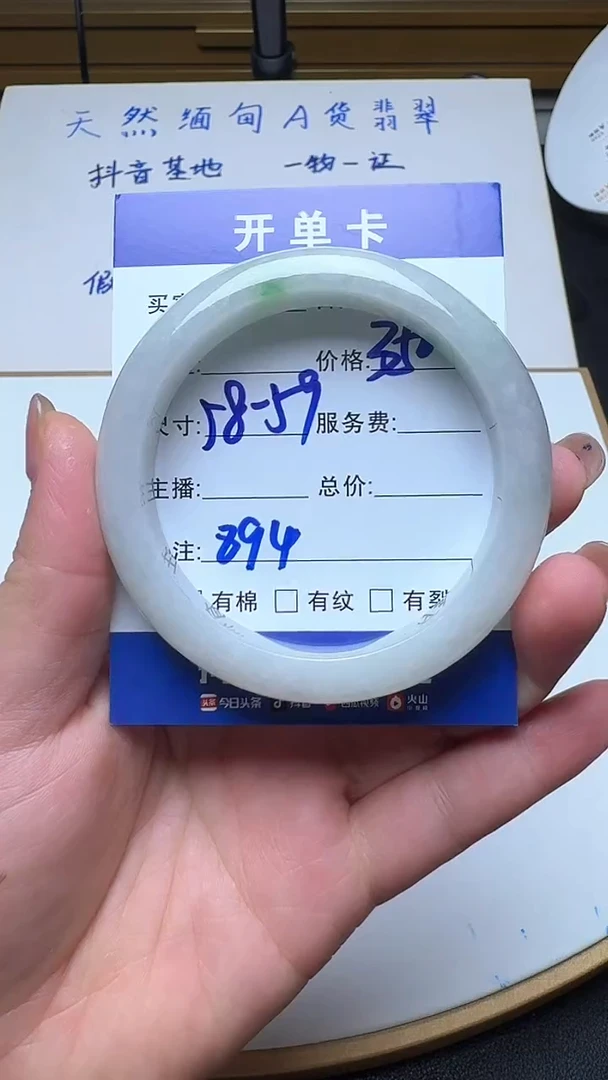 天然缅甸A货翡翠
抖音基地 一物一证
假
开单卡
买
价格: 350
寸: 58-59 服务费:
主播: 总价:
注: 894
有棉 □有纹 □有裂
今日头条 抖音 西瓜视频 火山